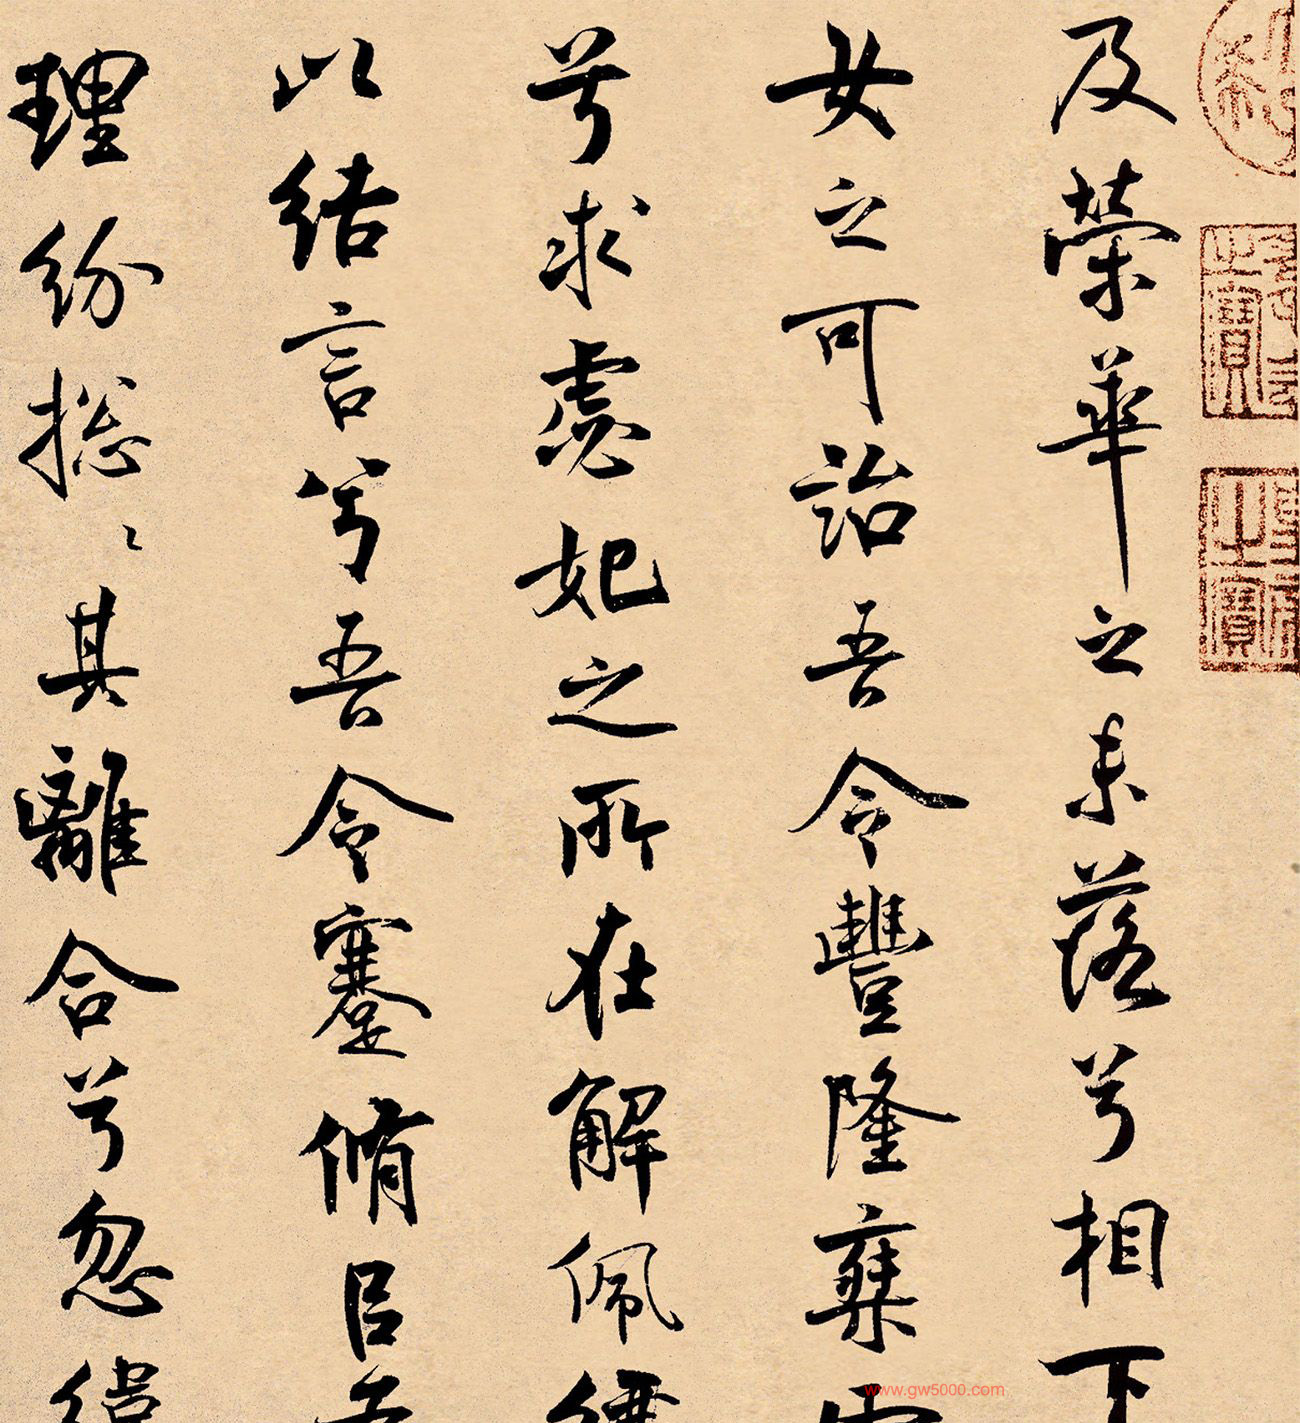 及榮華之未落兮相下
女之可詒吾令豐隆椉
兮求虙妃之所在解佩
以結言兮吾令蹇脩㠯
理紛揔〻其離合兮忽緯
www.gw5000.com